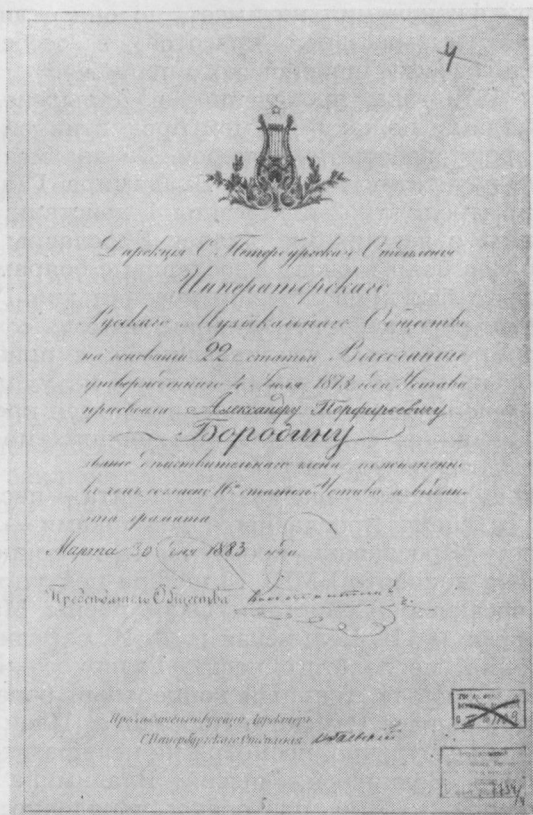 4
Дирекція С. Петербургскаго Отдѣленія
Императорскаго
Русскаго Музыкальнаго Общества
на основаніи 22 статьи Высочайше
утвержденнаго 4 Іюля 1873 года Устава
присвоила Александру Порфирьевичу
Бородину
званіе дѣйствительнаго члена
въ чемъ согласно 16 статьи Устава и выдана
грамата
Марта 30 дня 1883 года
Предсѣдатель Общества Константинъ
Предсѣдательствующій Директоръ
С. Петербургскаго Отдѣленія